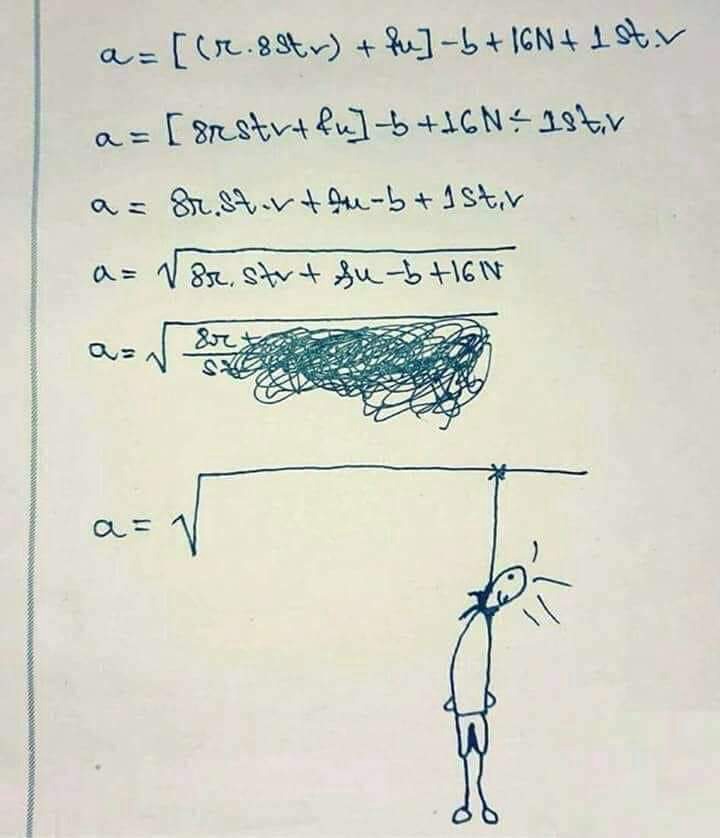 a = [(r.8St v) + fu] - b + 16N + 1 St.v
a = [8r st v + fu] - b + 16N ÷ 1st.v
a = 8r.St.v + fu - b + 1St.v
a = √8r.st v + fu - b + 16N
a = √8r +
a = √